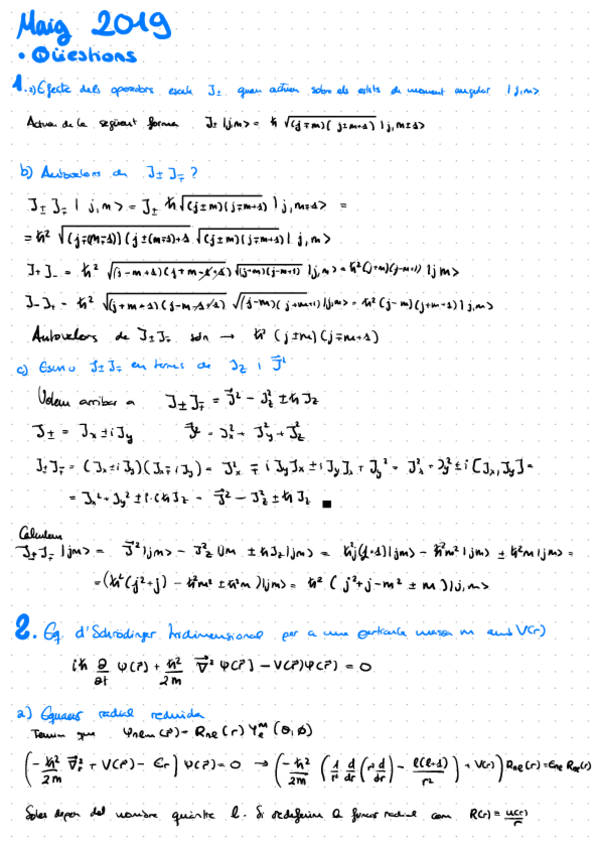 Maig 2019
• Qüestions
1. a) Efecte dels operadors escala J± quan actuen sobre els estats de moment angular |j,m>
Actua de la següent forma J± |j,m> = ħ √(j∓m)(j±m+1) |j,m±1>
b) Autovalors de J± J∓ ?
J± J∓ |j,m> = J± ħ √(j±m)(j∓m+1) |j,m∓1> =
= ħ² √(j∓(m∓1))(j±(m∓1)+1 √(j±m)(j∓m+1) |j,m>
J+ J- = ħ² √(j-m+1)(j+m-1+1) √(j+m)(j-m+1) |j,m> = ħ² (j+m)(j-m+1) |jm>
J- J+ = ħ² √(j+m+1)(j-m-1+1) √(j-m)(j+m+1) |j,m> = ħ² (j-m)(j+m+1) |j,m>
Autovalors de J± J∓ són → ħ² (j±m)(j∓m+1)
c) Escriu J± J∓ en termes de Jz i J⃗²
Volem arribar a J± J∓ = J⃗² - Jz² ± ħ Jz
J± = Jx ± i Jy J⃗² = Jx² + Jy² + Jz²
J± J∓ = (Jx ± i Jy)(Jx ∓ i Jy) = Jx² ∓ i Jx Jy ± i Jy Jx + Jy² = Jx² + Jy² ± i [Jx, Jy] =
= Jx² + Jy² ± i·(ħ Jz = J⃗² - Jz² ± ħ Jz ■
Calculem
J± J∓ |jm> = J⃗² |jm> - Jz² |jm ± ħ Jz |jm> = ħ² j(j+1) |jm> - ħ² m² |jm> ± ħ² m |jm> =
= (ħ² (j²+j) - ħ² m² ± ħ² m) |jm> = ħ² (j² + j - m² ± m) |j,m>
2. Eq. d'Schrödinger tridimensional per a una partícula massa m amb V(r)
iħ ∂/∂t ψ(r⃗) + ħ²/2m ∇⃗² ψ(r⃗) - V(r⃗) ψ(r⃗) = 0
a) Equació radial reduïda
Tenim que ψnlm(r⃗) = Rnl(r) Yl^m(θ,ϕ)
(-ħ²/2m ∇⃗r² + V(r⃗) - Er) ψ(r⃗) = 0 → (-ħ²/2m (1/r² d/dr (r² d/dr) - l(l+1)/r²) + V(r)) Rnl(r) = Enl Rnl(r)
Sols depen del nombre quàntic l. Si redefinim la funció radial com R(r) = u(r)/r